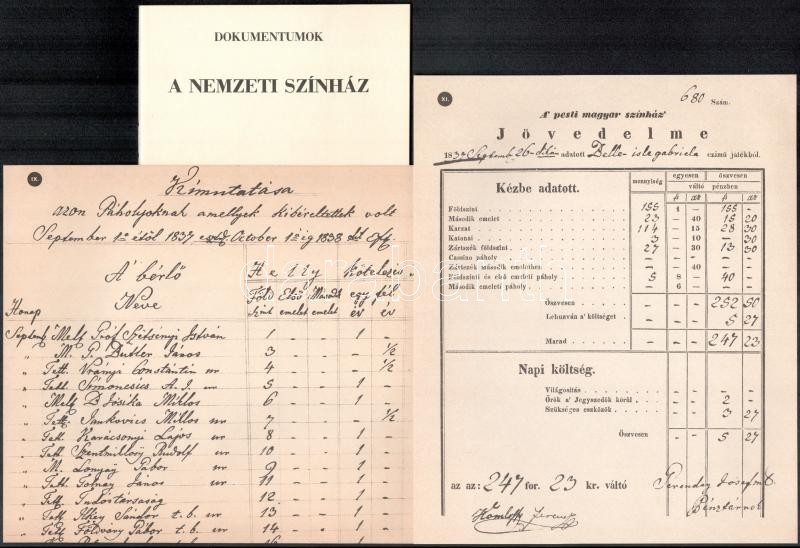 DOKUMENTUMOK
A NEMZETI SZÍNHÁZ
IX.
Kimutatása
azon Páholyoknak amellyek kibéreltettek volt
September 1ő étől 1837 October 1ő ig 1838
A' bérlő
Neve
Hely
Kötelezés
Föld Első Másod egy fél
Szint emelet emelet év év
Honap
Septemb Melt Gróf Szétsényi István 1 - - 1 -
" M. P. Búttler János 3 - - - 1/2
" Tett. Vrányi Constántin ur 4 - - - 1/2
" Tett. Simoncsics A. J. ur 5 - - 1 -
" Melt B Jósika Miklos 6 - - 1 -
" Tett. Jankovics Miklos ur 7 - - - 1/2
" Tett. Karácsonyi Lajos ur 8 - - 1 -
" Tett. Szentmillosy Rudolf ur 10 - - 1 -
" M. Lonyay Gábor ur 9 - - 1 -
" Tett. Tolnay János ur 11 - - 1 -
" Tett. Tudóstársaság 12 - - 1 -
" Tett. Ilkey Sándor t. b. ur 13 - - 1 -
" Tett Földváry Gábor t. b. ur 14 - - 1 -
XI.
680 Szám.
A' pesti magyar színház'
Jövedelme
1837 Septemb 26-dikán adatott Belle-isle gabriela czimű játékból.
Kézbe adatott. mennyiség egyesen öszvesen
váltó pénzben
f xr f xr
Földszint 155 1 - 155 -
Második emelet 23 - 40 15 20
Karzat 114 - 15 28 30
Katonai 3 - 10 - 30
Zártszék földszint 27 - 30 13 30
Cassino páholy - - - - -
Zártszék második emeletben - - 40 - -
Földszinti és első emeleti páholy 5 8 - 40 -
Második emeleti páholy - 6 - - -
Öszvesen 252 50
Lehuzván a' költséget 5 27
Marad 247 23
Napi költség.
Világositás - -
Őrök a' Jegyszedők körül 2 -
Szükséges eszközök 3 27
Öszvesen 5 27
az az: 247 for. 23 kr. váltó
Ferenczy József mk
Pénztárnok
Komlossy Ferencz